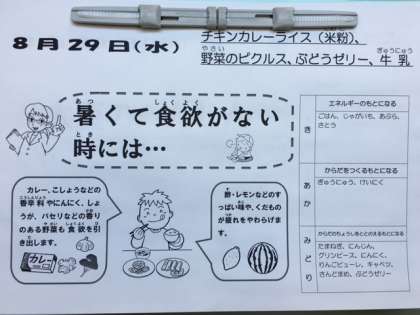 8月29日(水)
チキンカレーライス(米粉)、
野菜のピクルス、ぶどうゼリー、牛乳
暑くて食欲がない
時には…
カレー、こしょうなどの
香辛料やにんにく、しょ
うが、パセリなどの香り
のある野菜も食欲を引
き出します。
カレー
酢・レモンなどのす
っぱい味や、くだもの
が疲れをやわらげま
す。
エネルギーのもとになる
き
ごはん、じゃがいも、あぶら、
さとう
からだをつくるもとになる
あか
ぎゅうにゅう、けいにく
からだのちょうしをととのえるもとになる
みどり
たまねぎ、にんじん、
グリンピース、にんにく、
りんごピューレ、キャベツ、
さんどまめ、ぶどうゼリー